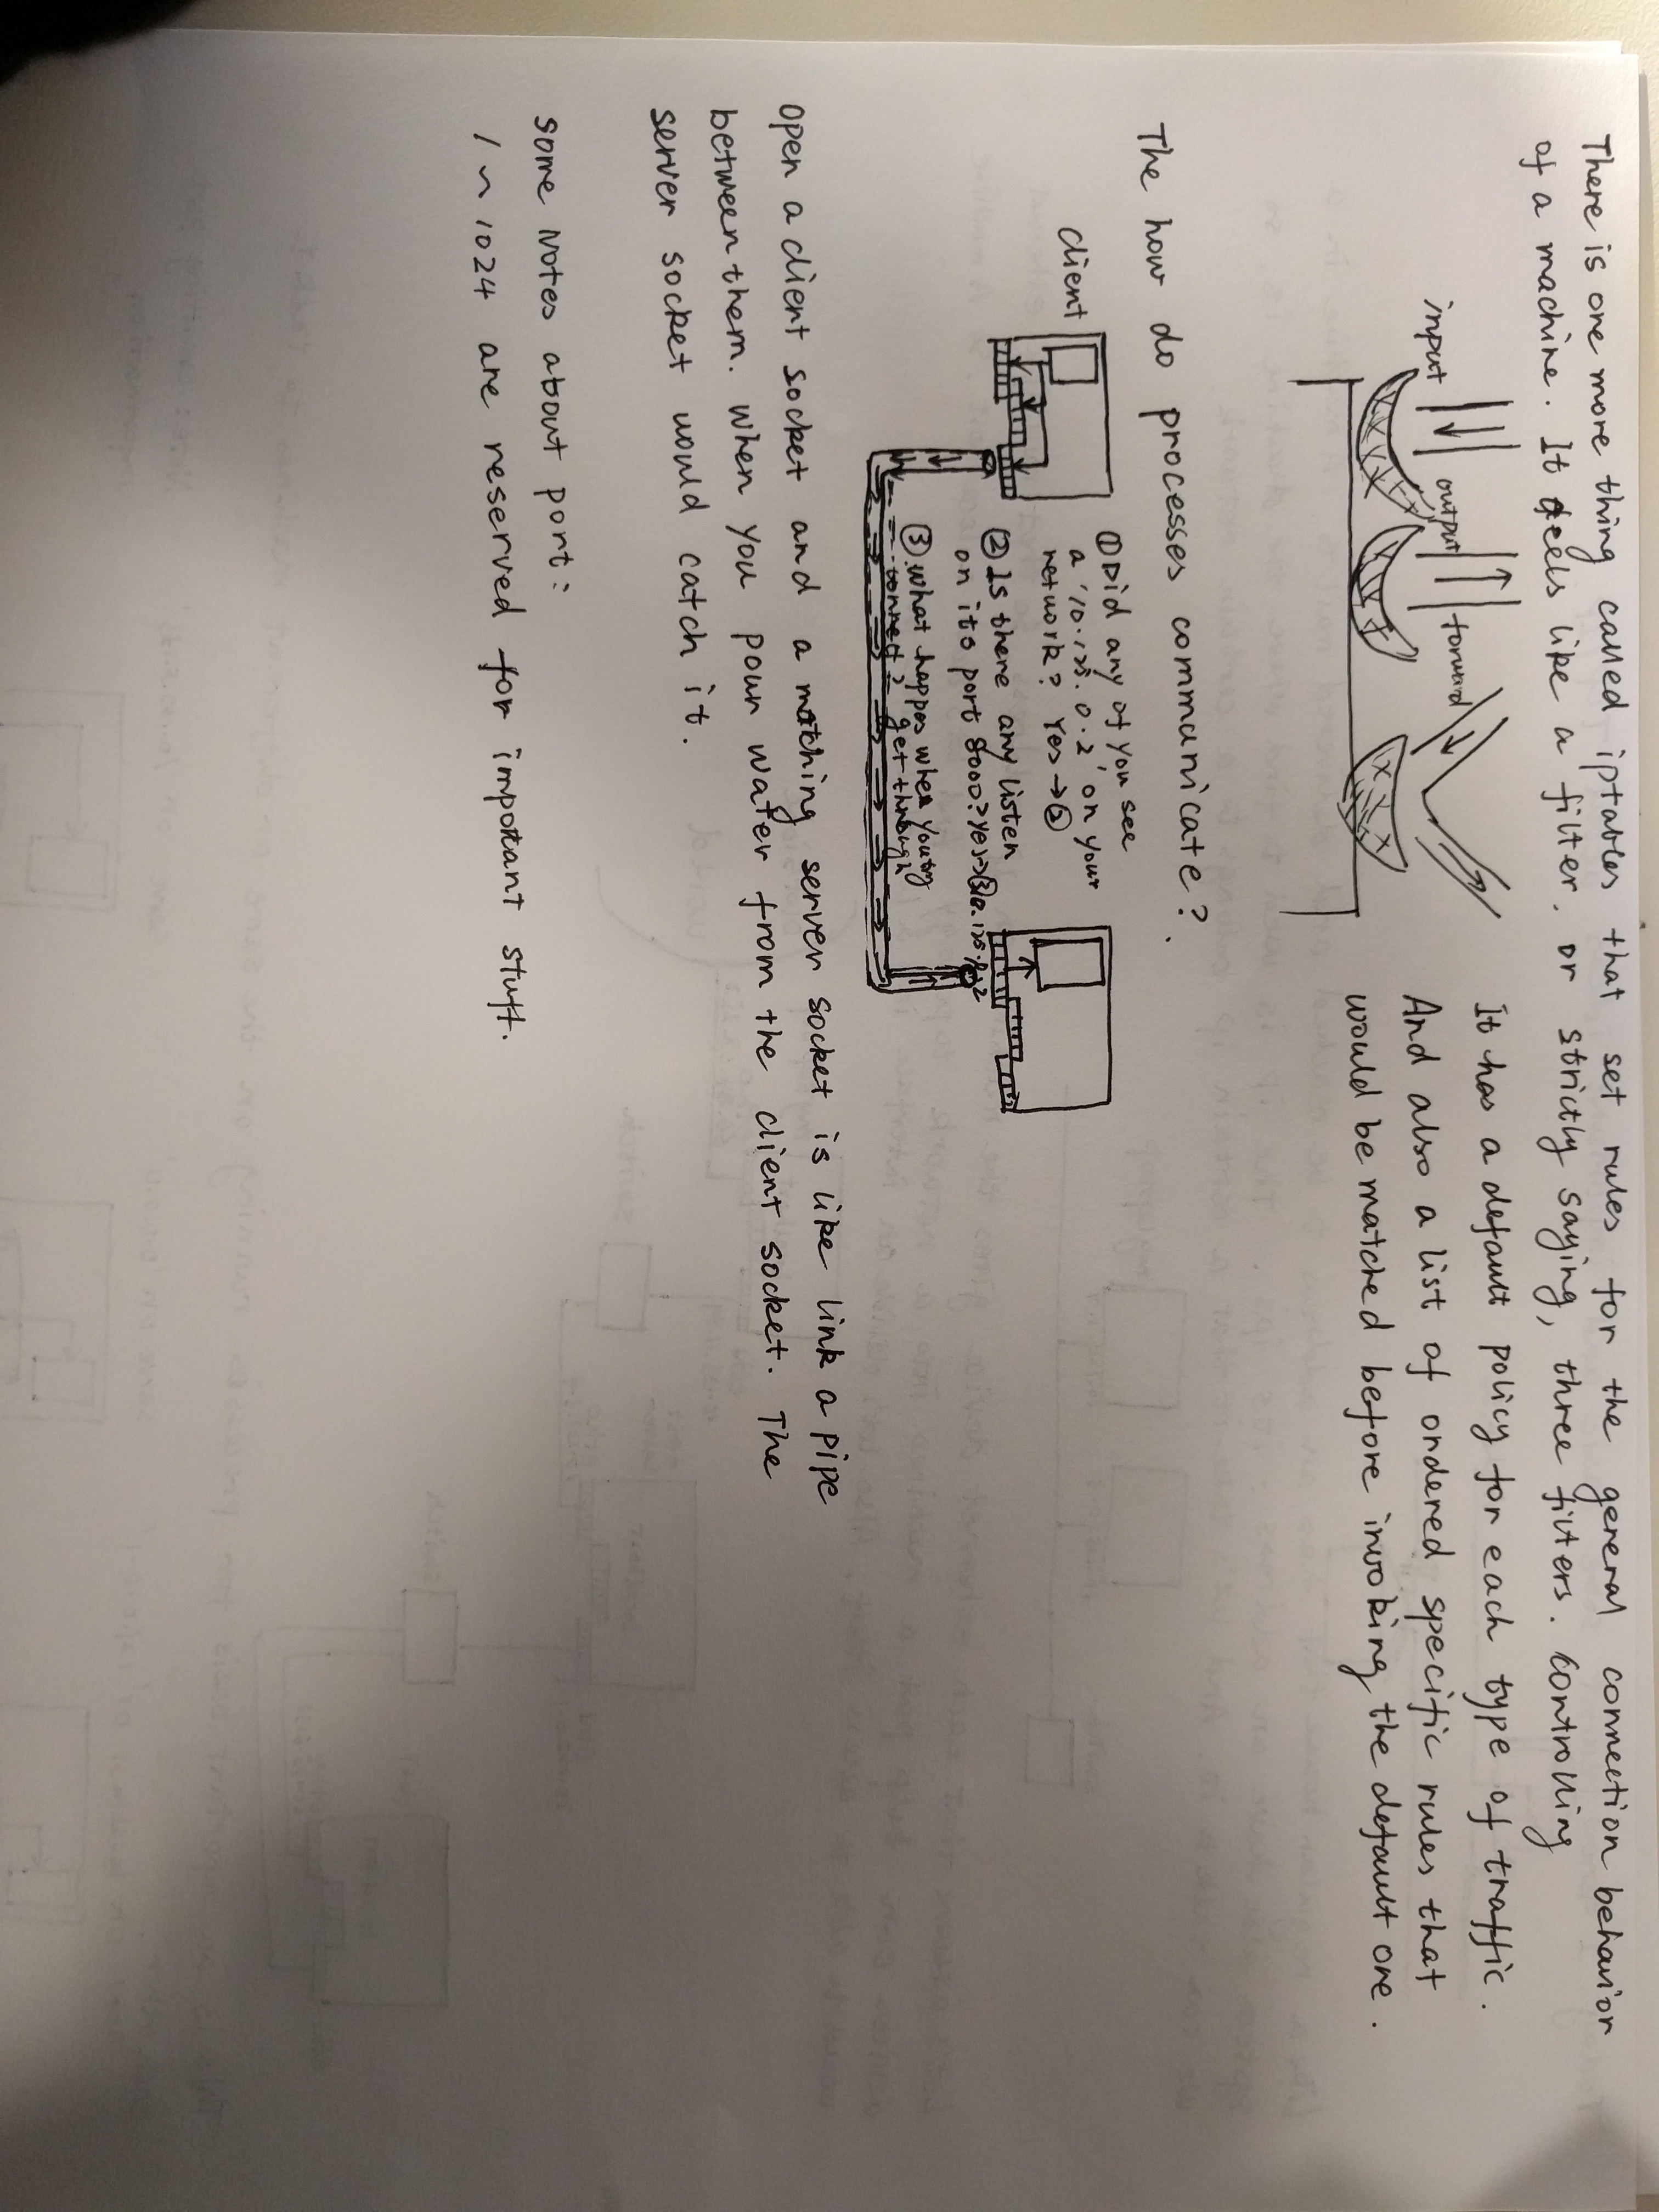 There is one more thing called iptables that set rules for the general connection behavior
of a machine. It feels like a filter. or strictly saying, three filters. controlling
input
output
forward
It has a default policy for each type of traffic.
And also a list of ordered specific rules that
would be matched before invoking the default one.
The how do processes communicate?
client
① Did any of you see
a '10.125.0.2' on your
network? Yes → ②
② Is there any listen
on its port 8000? Yes → ③
③. what happes when you try
connect? get through
Open a client socket and a matching server socket is like link a pipe
between them. when you pour water from the client socket. The
server socket would catch it.
some Notes about port:
1 ~ 1024 are reserved for important stuff.